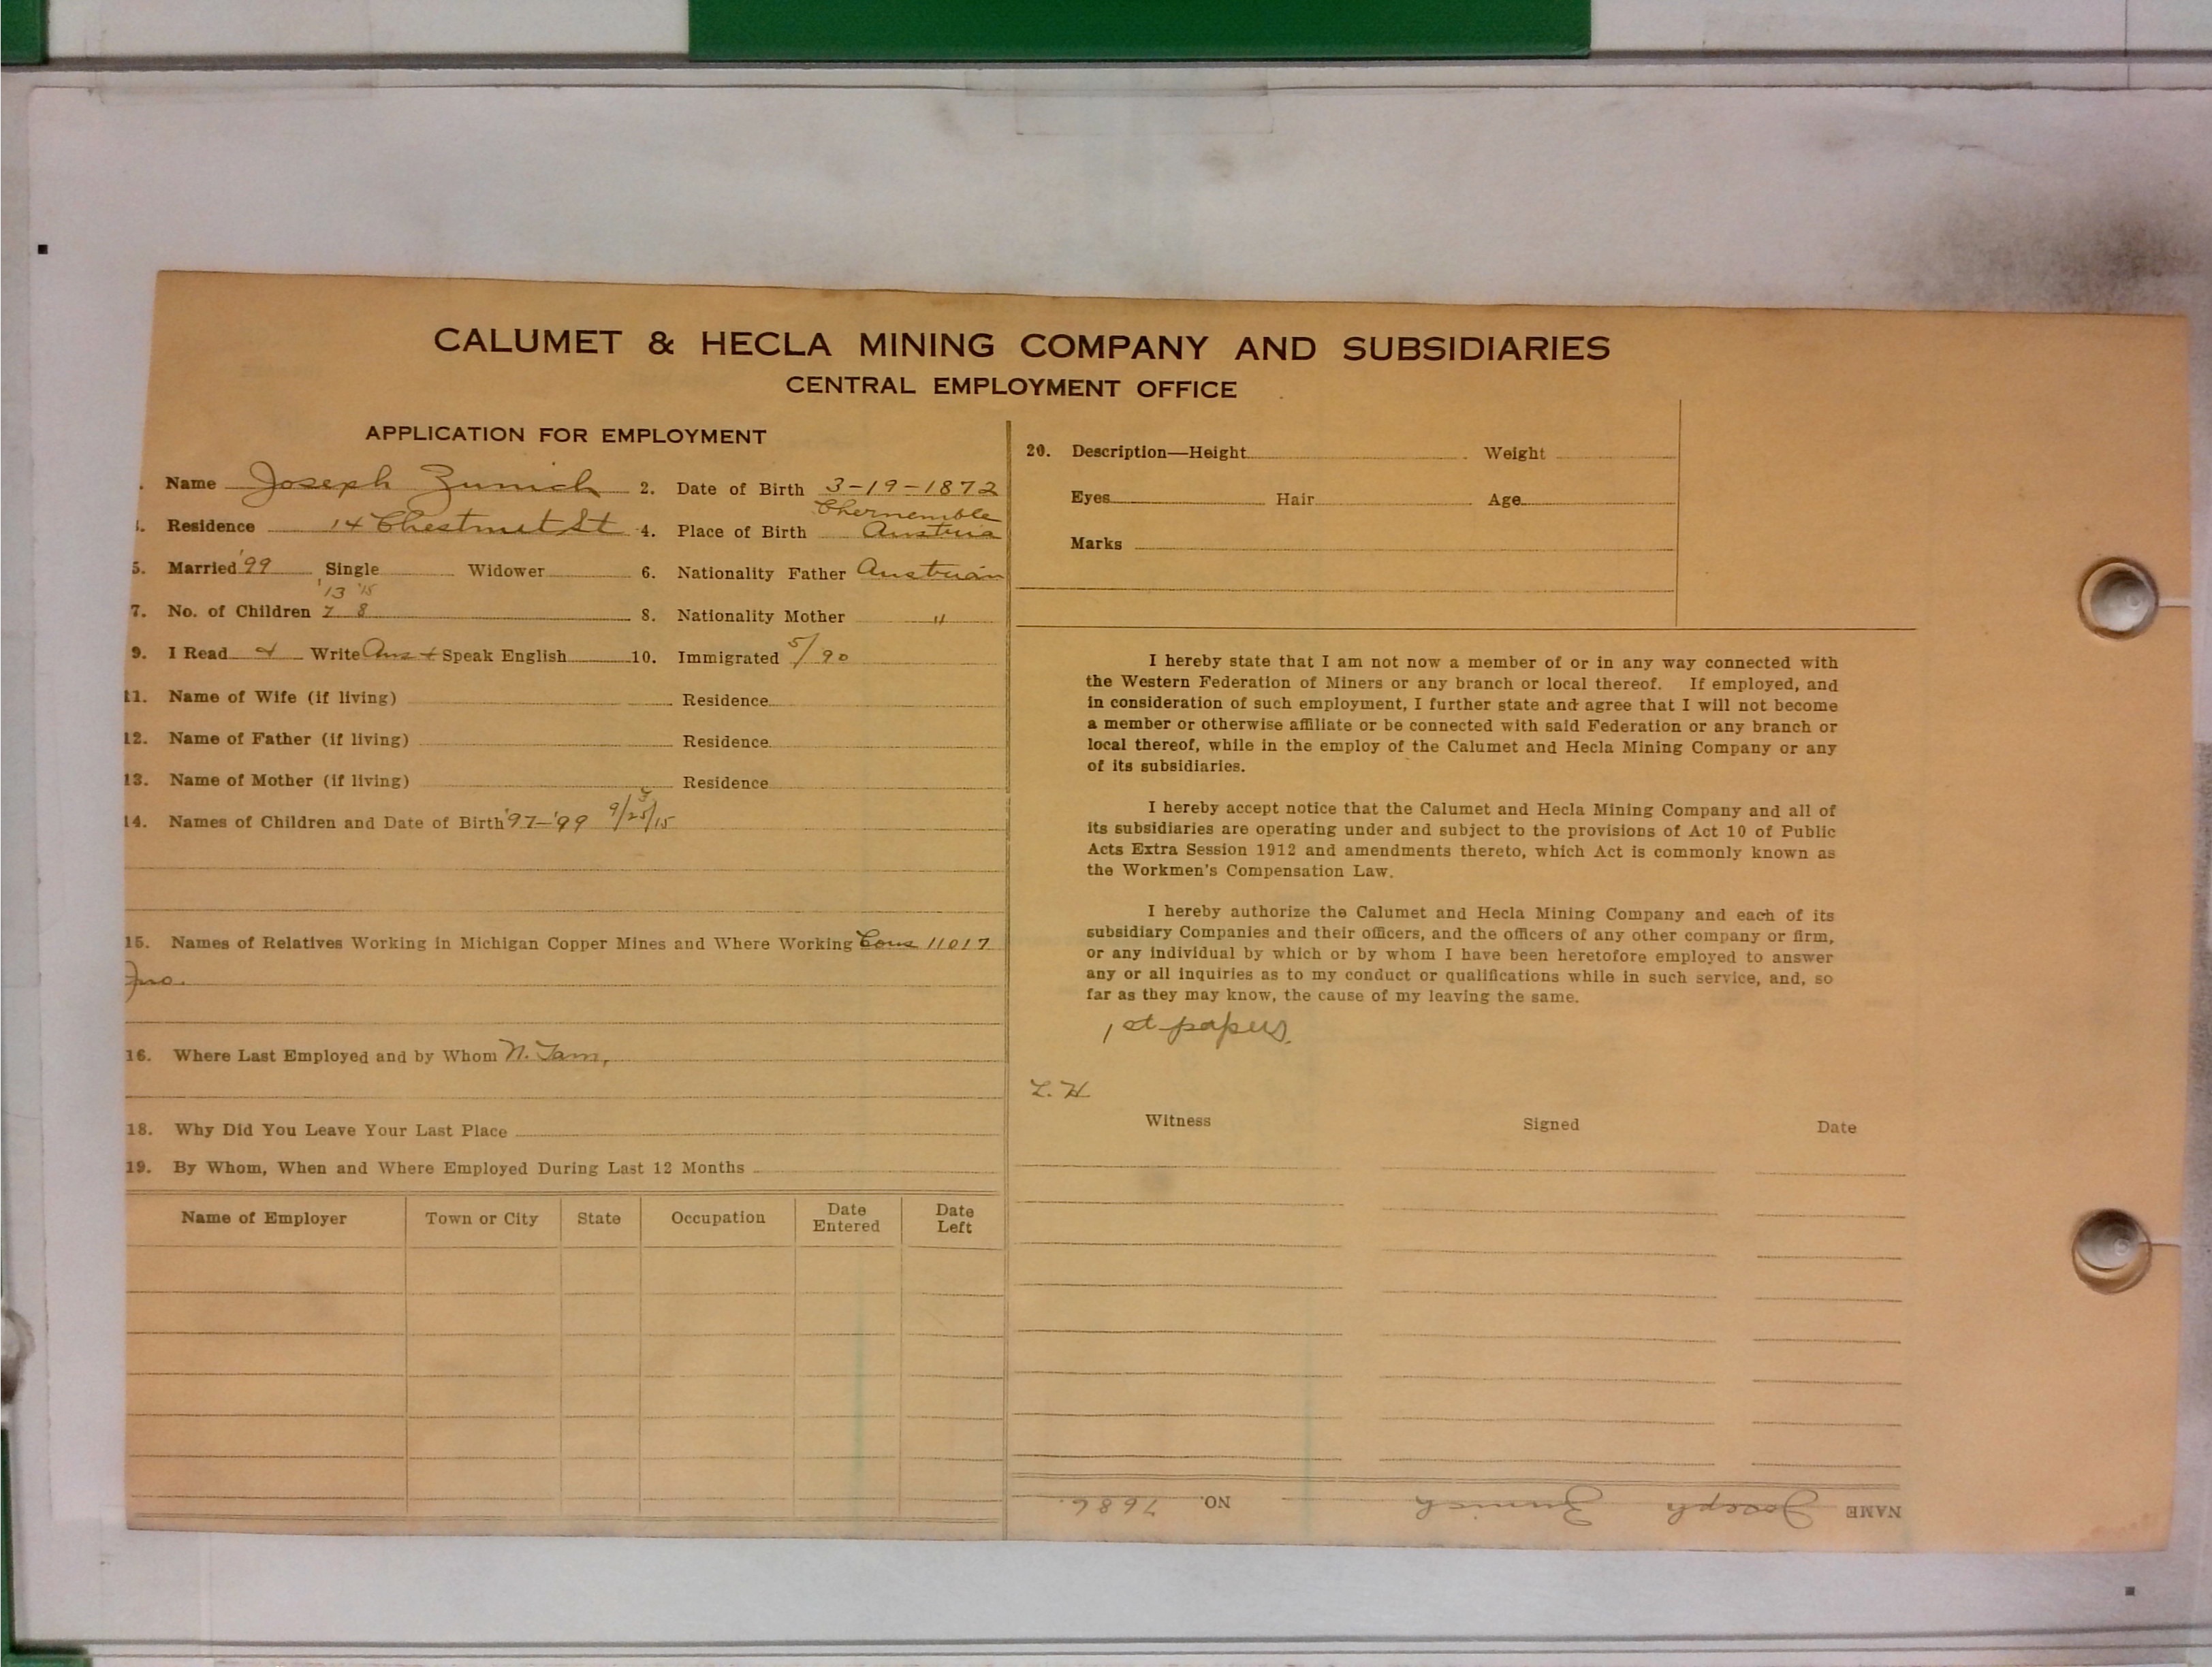 CALUMET & HECLA MINING COMPANY AND SUBSIDIARIES
CENTRAL EMPLOYMENT OFFICE
APPLICATION FOR EMPLOYMENT
. Name Joseph Zunich 2. Date of Birth 3-19-1872
. Residence 14 Chestnut St 4. Place of Birth Chernemble Austria
5. Married '99 Single Widower 6. Nationality Father Austrian
'13 '15
7. No. of Children 7 8 8. Nationality Mother "
9. I Read & Write Aus + Speak English 10. Immigrated 5/90
11. Name of Wife (if living) Residence
12. Name of Father (if living) Residence
13. Name of Mother (if living) Residence
14. Names of Children and Date of Birth '97-'99 9/25/15
15. Names of Relatives Working in Michigan Copper Mines and Where Working Cous 11017
Jno.
16. Where Last Employed and by Whom N. Tam,
18. Why Did You Leave Your Last Place
19. By Whom, When and Where Employed During Last 12 Months
Name of Employer Town or City State Occupation Date Entered Date Left
20. Description—Height Weight
Eyes Hair Age
Marks
I hereby state that I am not now a member of or in any way connected with
the Western Federation of Miners or any branch or local thereof. If employed, and
in consideration of such employment, I further state and agree that I will not become
a member or otherwise affiliate or be connected with said Federation or any branch or
local thereof, while in the employ of the Calumet and Hecla Mining Company or any
of its subsidiaries.
I hereby accept notice that the Calumet and Hecla Mining Company and all of
its subsidiaries are operating under and subject to the provisions of Act 10 of Public
Acts Extra Session 1912 and amendments thereto, which Act is commonly known as
the Workmen's Compensation Law.
I hereby authorize the Calumet and Hecla Mining Company and each of its
subsidiary Companies and their officers, and the officers of any other company or firm,
or any individual by which or by whom I have been heretofore employed to answer
any or all inquiries as to my conduct or qualifications while in such service, and, so
far as they may know, the cause of my leaving the same.
1st papers.
L. H
Witness Signed Date
NAME Joseph Zunich NO. 7686.